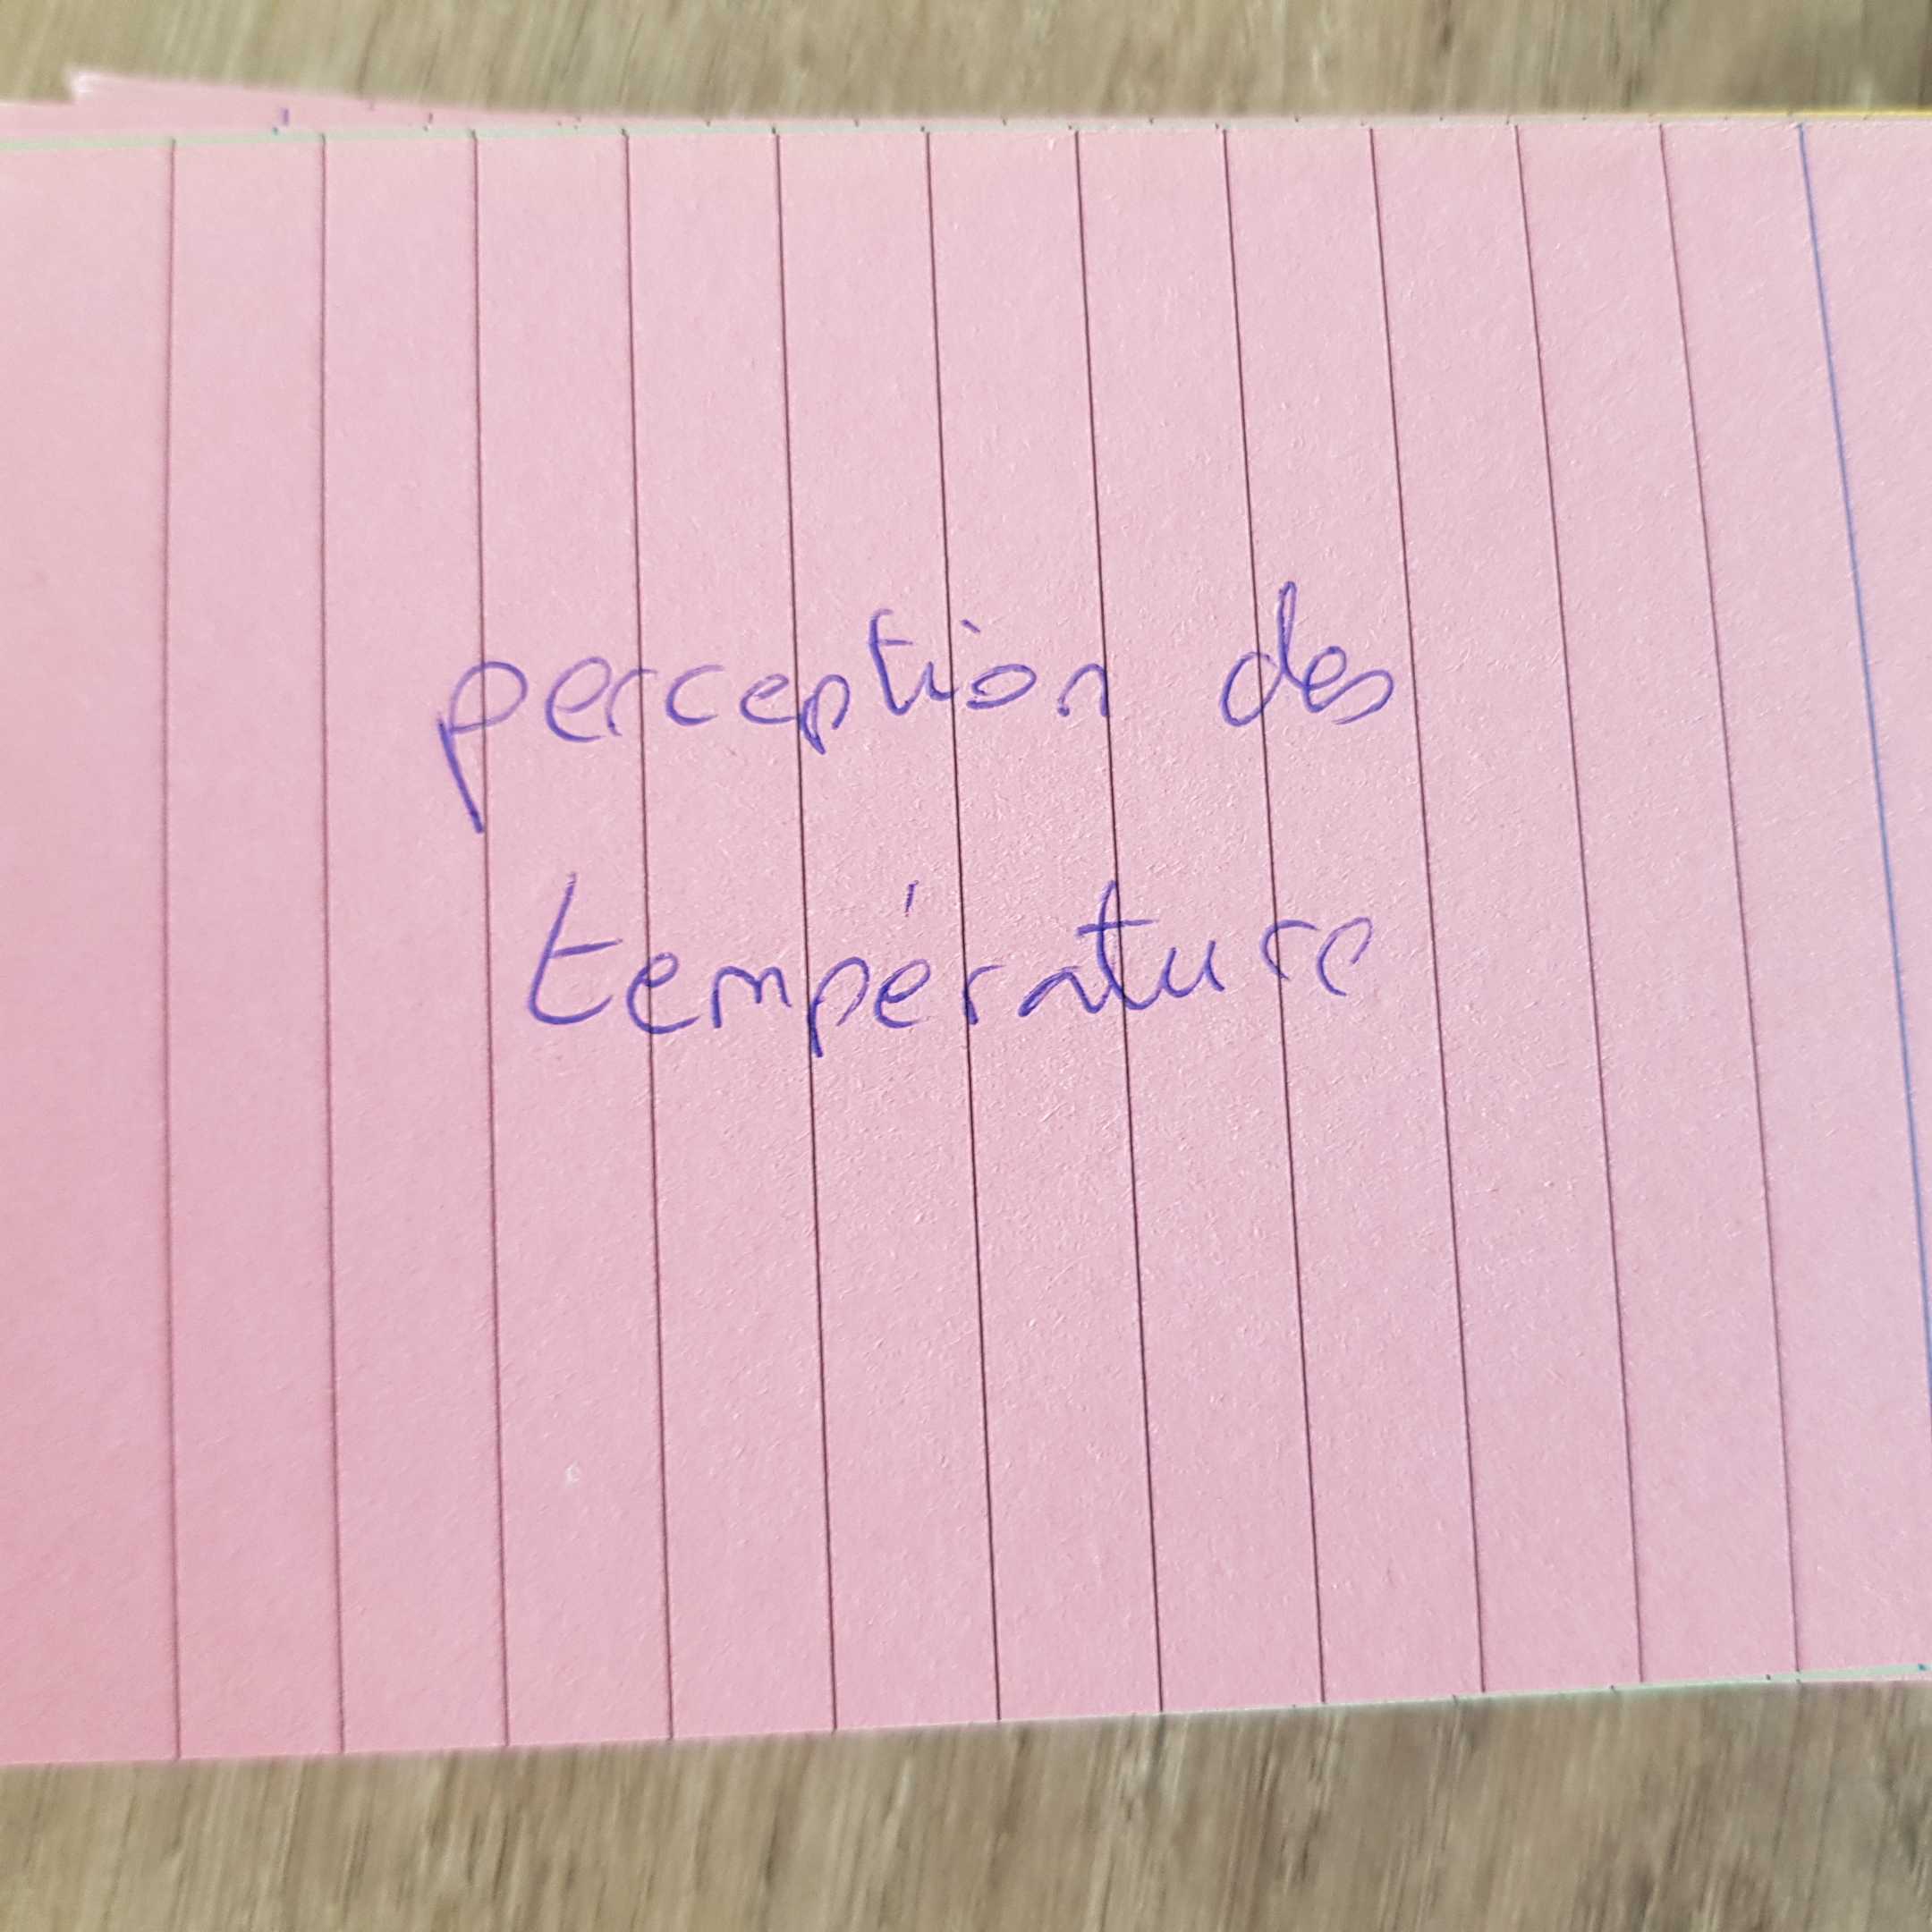 perception des
température